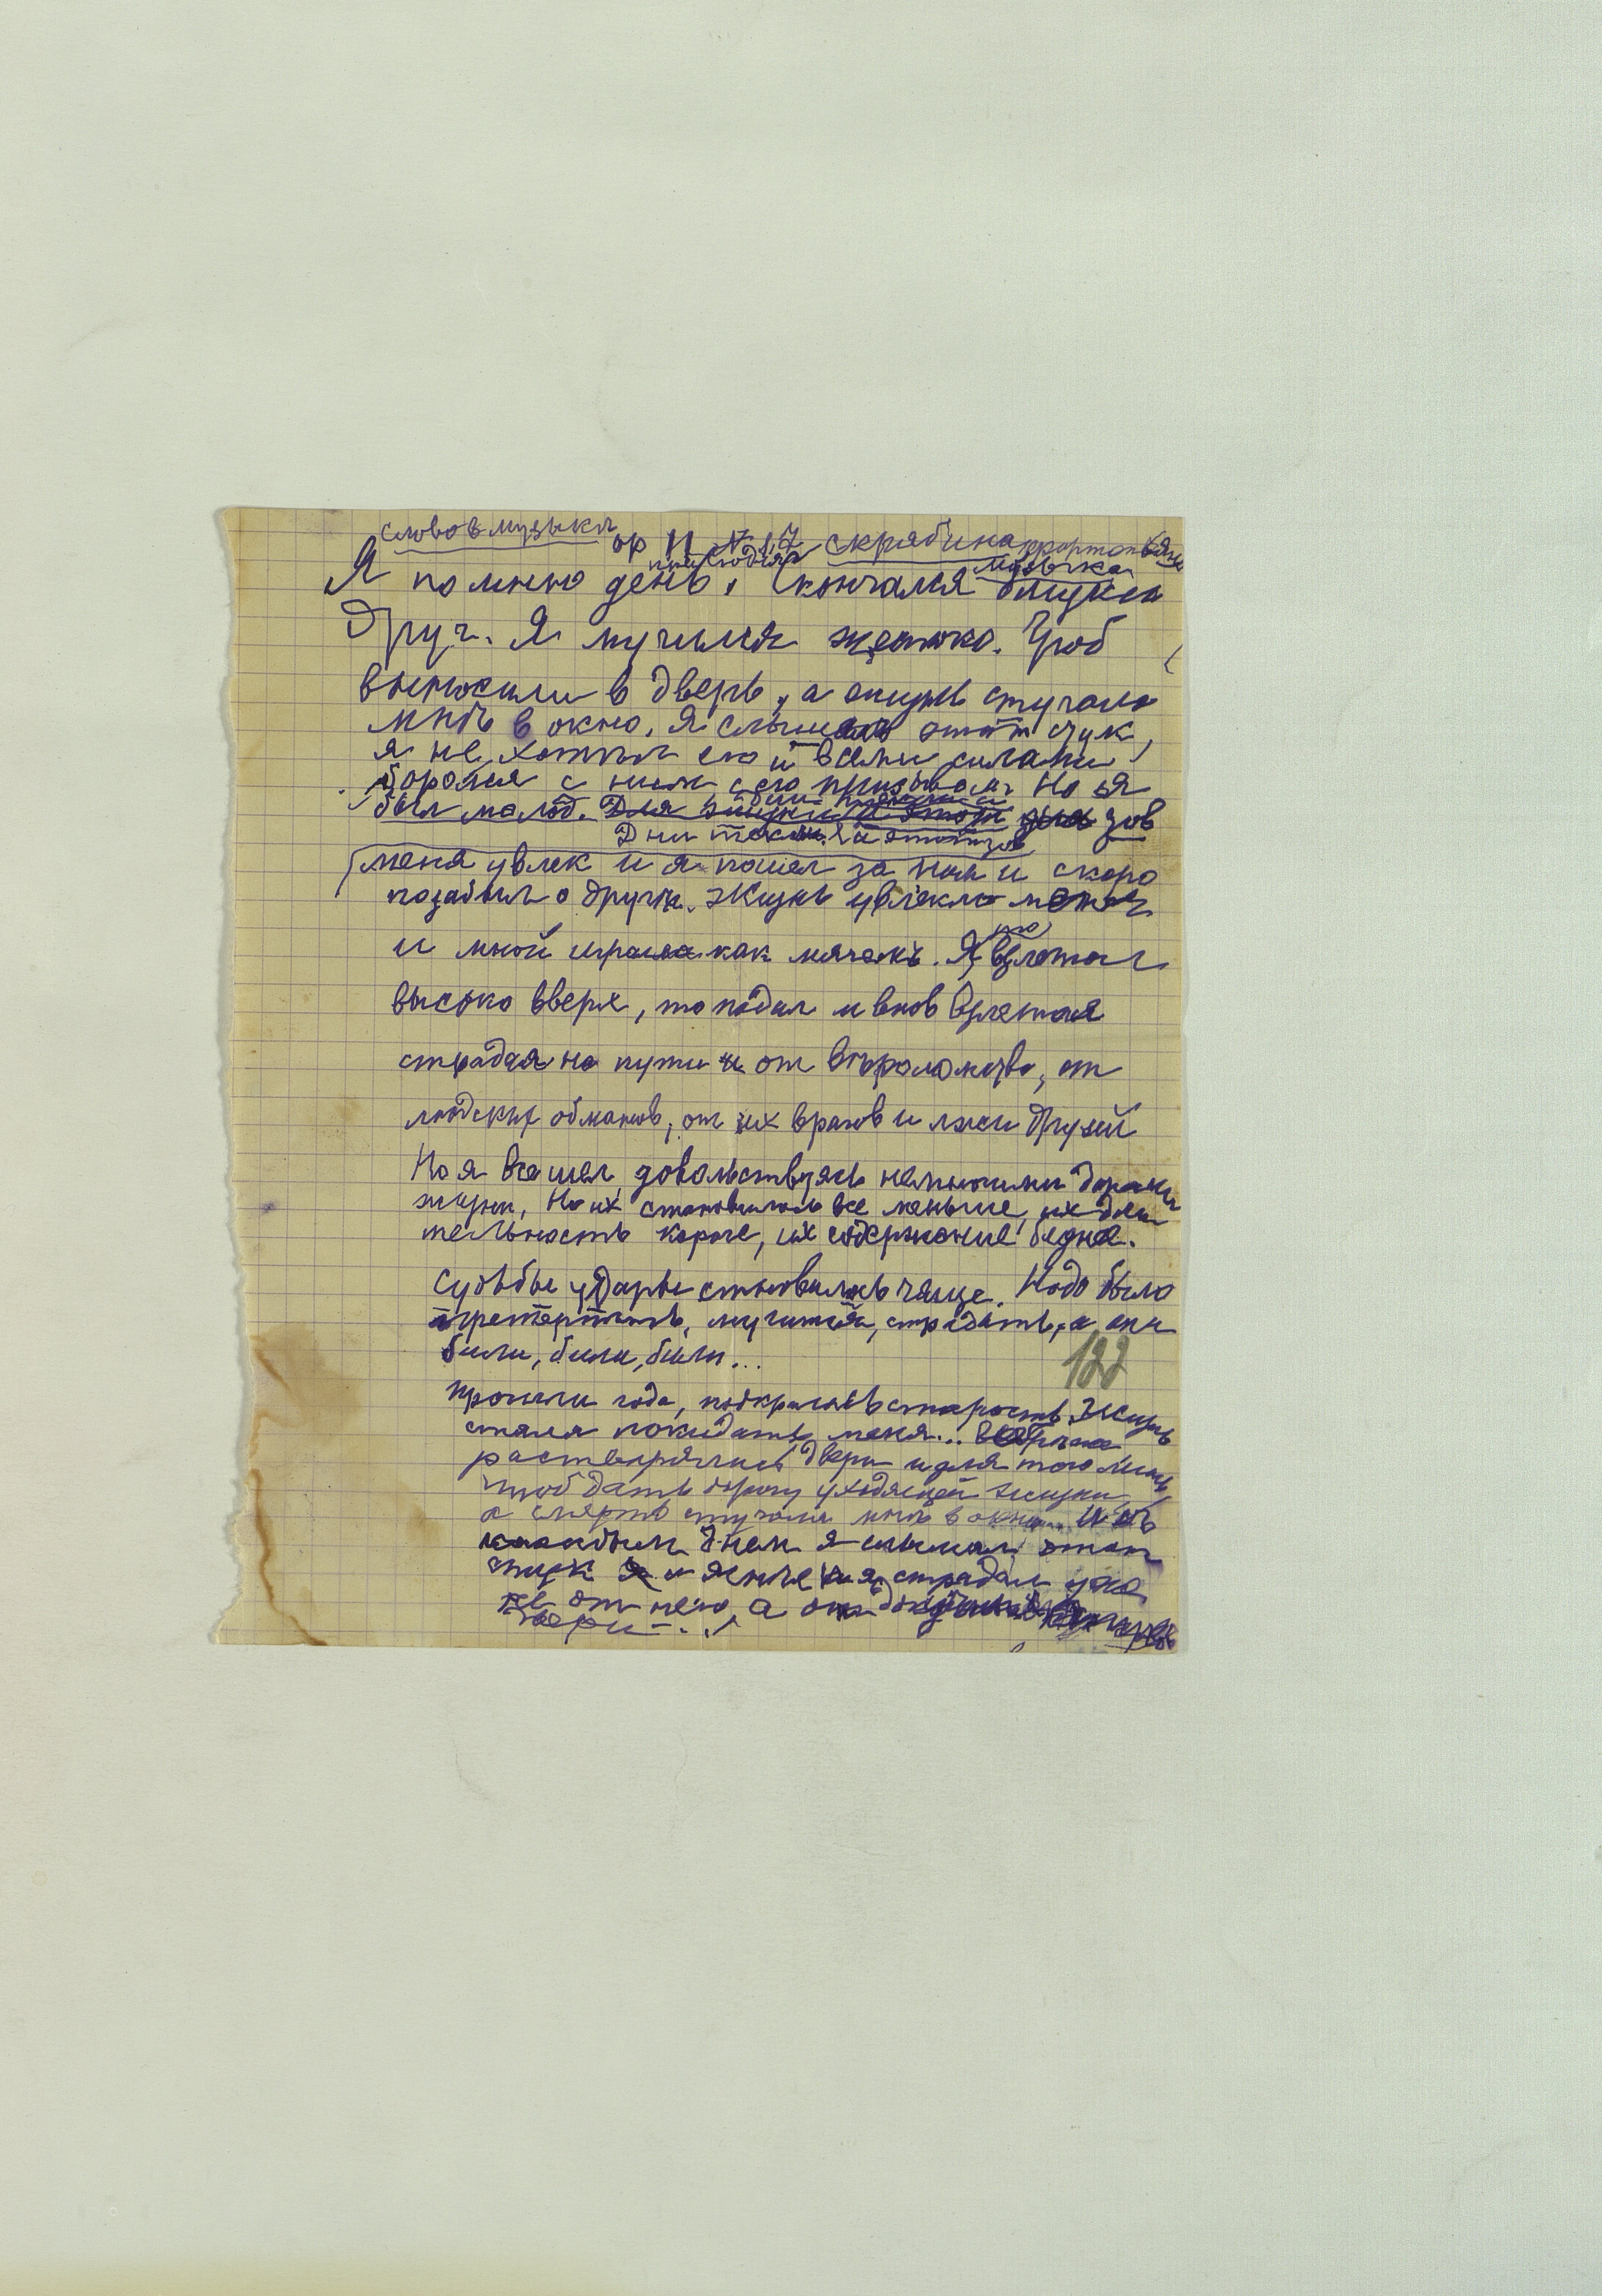 слова в музыка
ор 11 № 1,2 Скрябина фортопьяно
музыка
Я помню день, скончался близкий
Друг. Я мучился жестоко. Гроб
выносили в дверь, а жизнь стучала
мнѣ в окно. Я слышал этот стук,
я не хотѣл его и всеми силами
боролся с ним с его призывом. Но я
был молод. зов
Дни текли и этот зов
меня увлек и я пошел за ним и скоро
позабыл о другѣ. Жизнь увлекла меня
то
и мной играла как мячекъ. Я взлетал
высоко вверх, то падал и вновь взлетая
страдая на пути от вѣроломства, от
людских обманов, от их врагов и лжи друзей
Но я все шел, довольствуясь немногими дарами
жизни. Но их становилось все меньше, их дли
тельность короче, их содержание беднее.
Судьбы удары становились чаще. Надо было
претерпѣть, мучиться, страдать, а они
били, били, били...
122
Прошли года, подкралась старость. Жизнь
стала покидать меня...
растворялись двери и для того лишь
чтоб дать дорогу уходящей жизни
а смерть стучала мнѣ в окно... И съ
каждым днем я слышал этот
стук и яснее и я страдал уже
не от него, а от
двери...